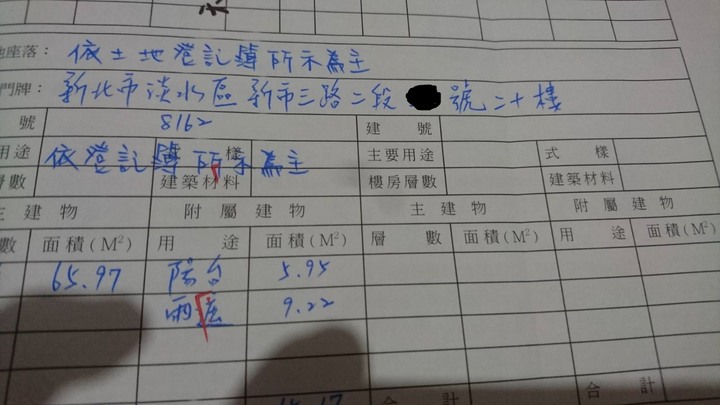 座落：依土地登記簿所示為主
門牌：新北市淡水區新市三路二段 號二十樓
號 8162 建 號
用途 依登記簿所示為主 樣 主要用途 式 樣
層數 建築材料 樓房層數 建築材料
主 建物 附 屬 建 物 主 建 物 附 屬 建 物
數 面積(M²) 用 途 面積(M²) 層 數 面積(M²) 用 途 面積(M²)
65.97 陽台 5.95
雨遮 9.22
合 計 合 計